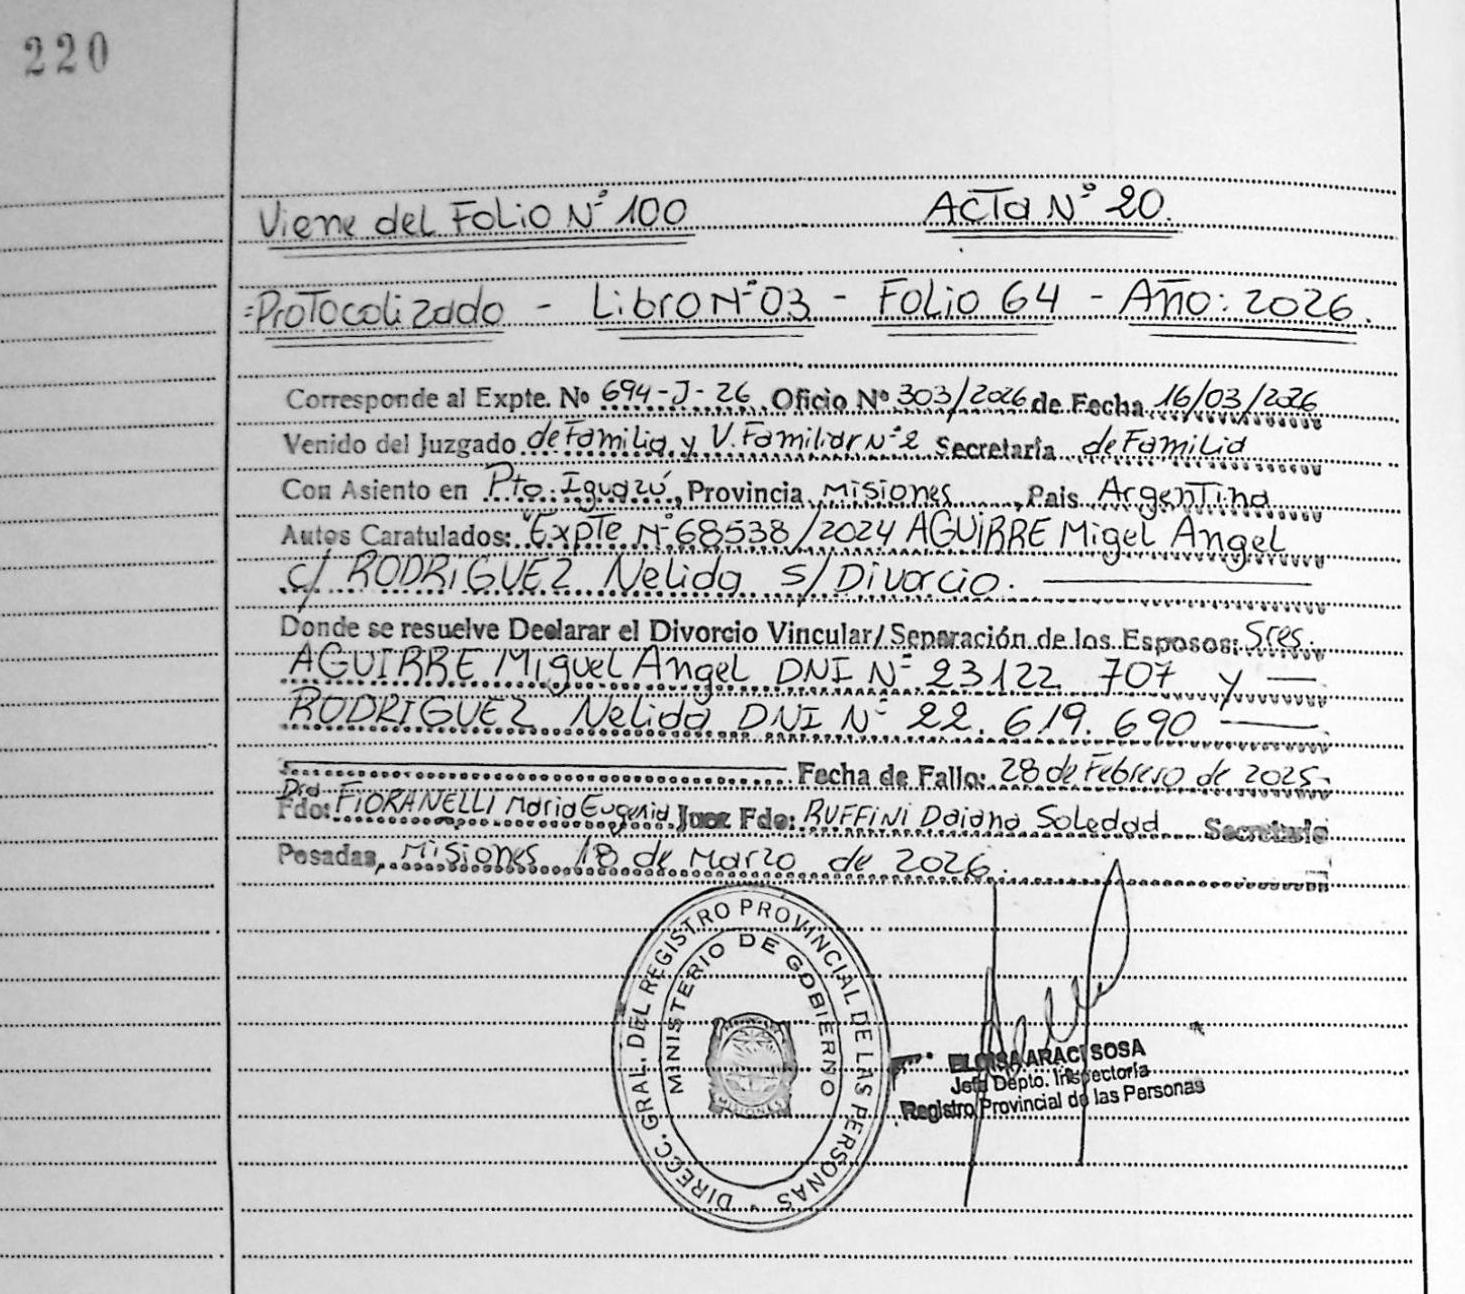 220
Viene del Folio Nº 100 Acta Nº 20.
=Protocolizado - Libro Nº 03 - Folio 64 - Año: 2026.
Corresponde al Expte. Nº 694-J-26 Oficio Nº 303/2026 de Fecha 16/03/2026
Venido del Juzgado de Familia y V. Familiar Nº 2 Secretaría de Familia
Con Asiento en Pto. Iguazú, Provincia Misiones, Pais Argentina
Autos Caratulados: "Expte Nº 68538/2024 AGUIRRE Migel Angel
c/ RODRIGUEZ Nelida s/ Divorcio.
Donde se resuelve Declarar el Divorcio Vincular/Separación de los Esposos: Sres.
AGUIRRE Miguel Angel DNI Nº 23122 707 y
RODRIGUEZ Nelida DNI Nº 22.619.690
Fecha de Fallo: 28 de Febrero de 2025-
Dra.
Fdo: FIORANELLI Maria Eugenia Juez Fdo: RUFFINI Daiana Soledad Secretario
Posadas, Misiones 18 de Marzo de 2026.
DIRECC. GRAL. DEL REGISTRO PROVINCIAL DE LAS PERSONAS
MINISTERIO DE GOBIERNO
MISIONES
ELOISA ARACI SOSA
Jefa Depto. Inspectoría
Registro Provincial de las Personas